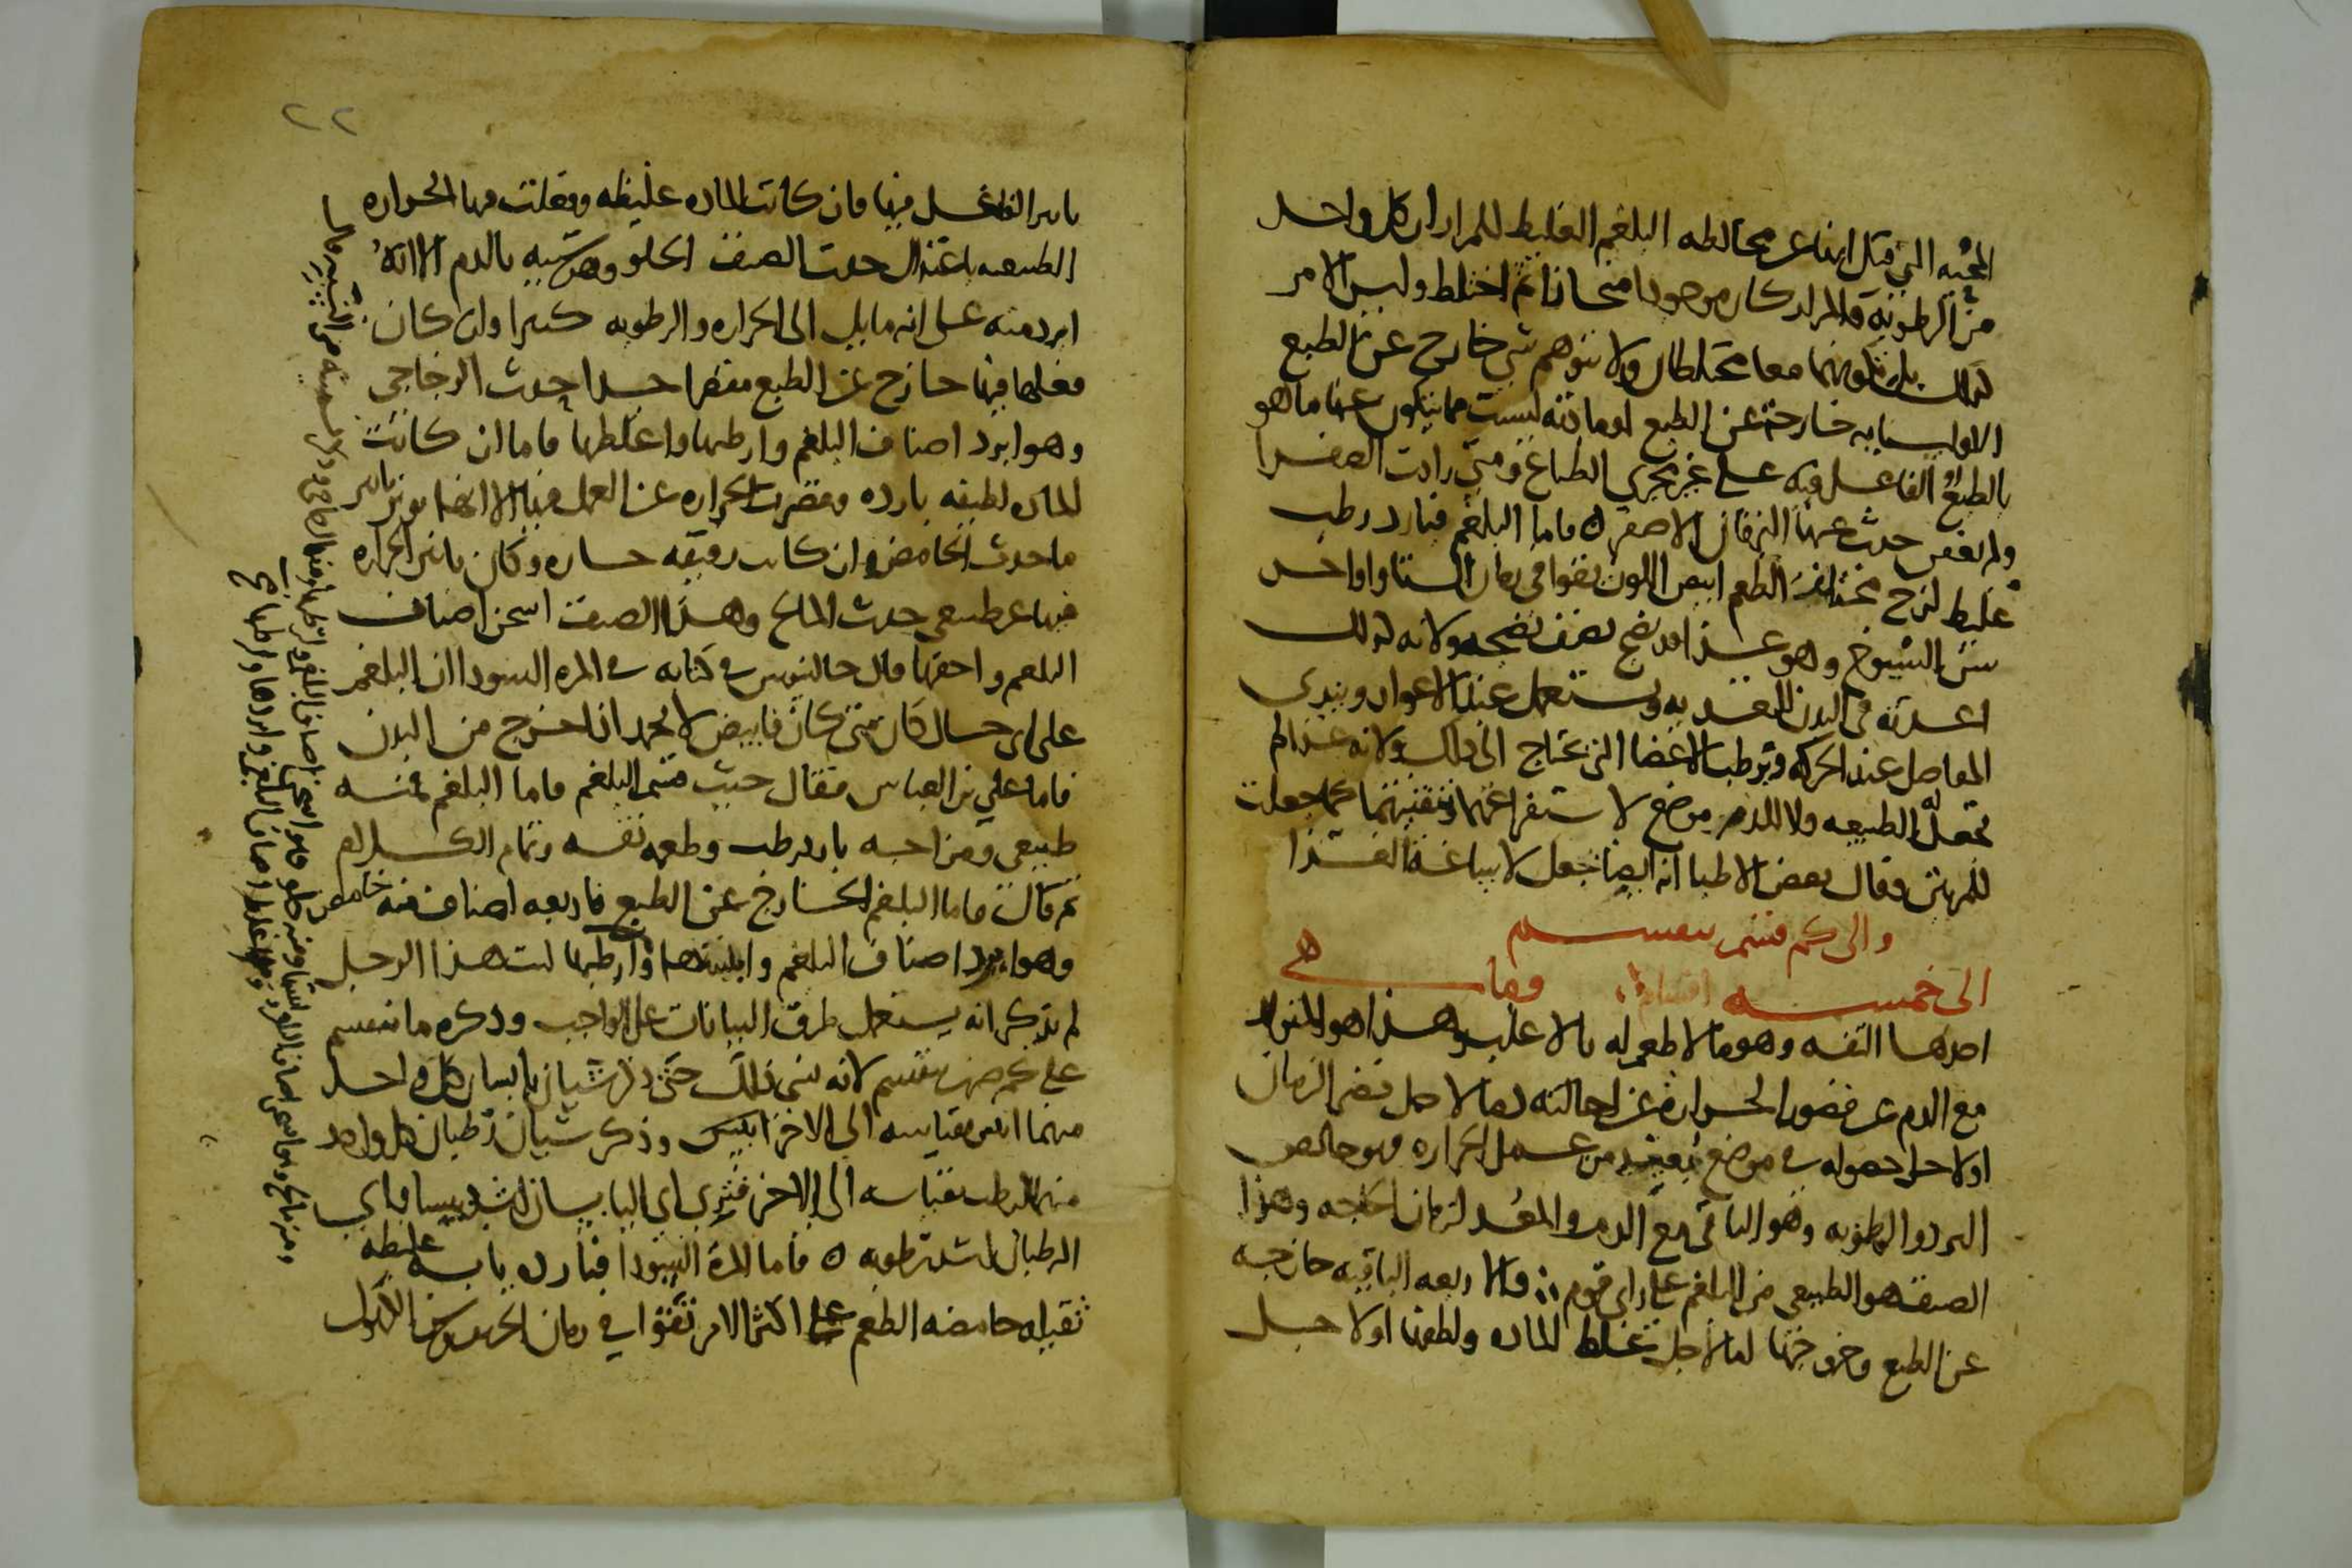 المحيه التي قيل انها عن مخالطه البلغم الغليظ للمرار ان كل واحد
من الرطوبة والمرار كان موجودا منحازا ثم اختلط وليس الامر
كذلك بل تكونهما معا مختلطان ولا تتوهم شي خارج عن الطبع
خارجة عن الطبع او مادته ليست مما يتكون عنها ما هو
بالطبع او الفاعل فيه على غير مجرى الطباع ومتى زادت الصفرا
ولم تعفن حدث عنها اليرقان الاصفر ه فاما البلغم فبارد رطب
غليظ لزج مختلف الطعم ابيض اللون يقوا في زمان الشتا واواخر
سن الشيوخ وهو غذا قد نضج نصف نضجه ولانه كذلك
اعدته في البدن للتغديه ويستعمل عند الاعواز ويندي
المفاصل عند الحركه وترطيب الاعضا التي تحتاج الى ذلك ولانه غذا لم
تجعل له الطبيعه ولا للدم موضع لاستفراغهما وتنقيتهما كما جعلت
للمرتين وقال بعض الاطبا انه ايضا جعل لاساغة الغذا
والى كم قسم ينقسم
الى خمسه اقسام وما هي
احدها التفه وهو ما لا طعم له بالاغلب وهذا هو المتولد
مع الدم عن قصور الحرارة عن احالته دما لاجل قصر الزمان
او لاجل حصوله في موضع بعيد من عمل الحراره وهو خالص
البرد والرطوبه وهو الباقي مع الدم والمعد لزمان الحاجه وهذا
الصنف هو الطبيعي من البلغم على راى قوم والاربعه الباقيه خارجه
عن الطبع وخروجها اما لاجل غلظ الماده ولطفها او لاجل
٢٢
تاثير الفاعل فيها فان كانت الماده غليظه وفعلت فيها الحراره
الطبيعيه باعتدال حدث الصنف الحلو وهو شبيه بالدم الا انه
ابرد منه على انه مايل الى الحراره والرطوبه كثيرا وان كان
فعلها فيها خارج عن الطبع مقصرا جدا حدث الزجاجي
وهو ابرد اصناف البلغم وارطبها واغلظها فاما ان كانت
الماده لطيفه بارده وقصرت الحراره عن العمل فيها الا انها توثر تاثير
ما حدث الحامض وان كانت رقيقه حاره وكان تاثير الحراره
فيها غير طبيعي حدث المالح وهذا الصنف اسخن اصناف
البلغم واجفها قال جالينوس في كتابه في المره السودا ان البلغم
على اي حال كان متى كان فابيض لا يجمد اذا خرج من البدن
فاما علي بن العباس فقال حيث قسم البلغم فاما البلغم فمنه
طبيعي ومزاجه بارد رطب وطعمه تفه وتمام الكلام
ثم قال فاما البلغم الخارج عن الطبع فاربعه اصناف فمنه حامض
وهو ابرد اصناف البلغم وايبسها وارطبها ليت هذا الرجل
لم يذكر انه يستعمل طرق البيانات على الواجب وذكره ما ينقسم
على كم ضرب ينقسم لانه نسي ذلك حتى ذكر شيان يابسان كل واحد
منهما ايبس بقياسه الى الاخر ايبس وذكر شيان رطبان كل واحد
منهما ارطب بقياسه الى الاخر فترى اي اليابسان اشد يبسا واي
الرطبان اشد رطوبه ه فاما المرة السودا فبارده يابسه غليظه
ثقيله حامضه الطعم على اكثر الامر تقوا في زمان الخريف وسن الكهول